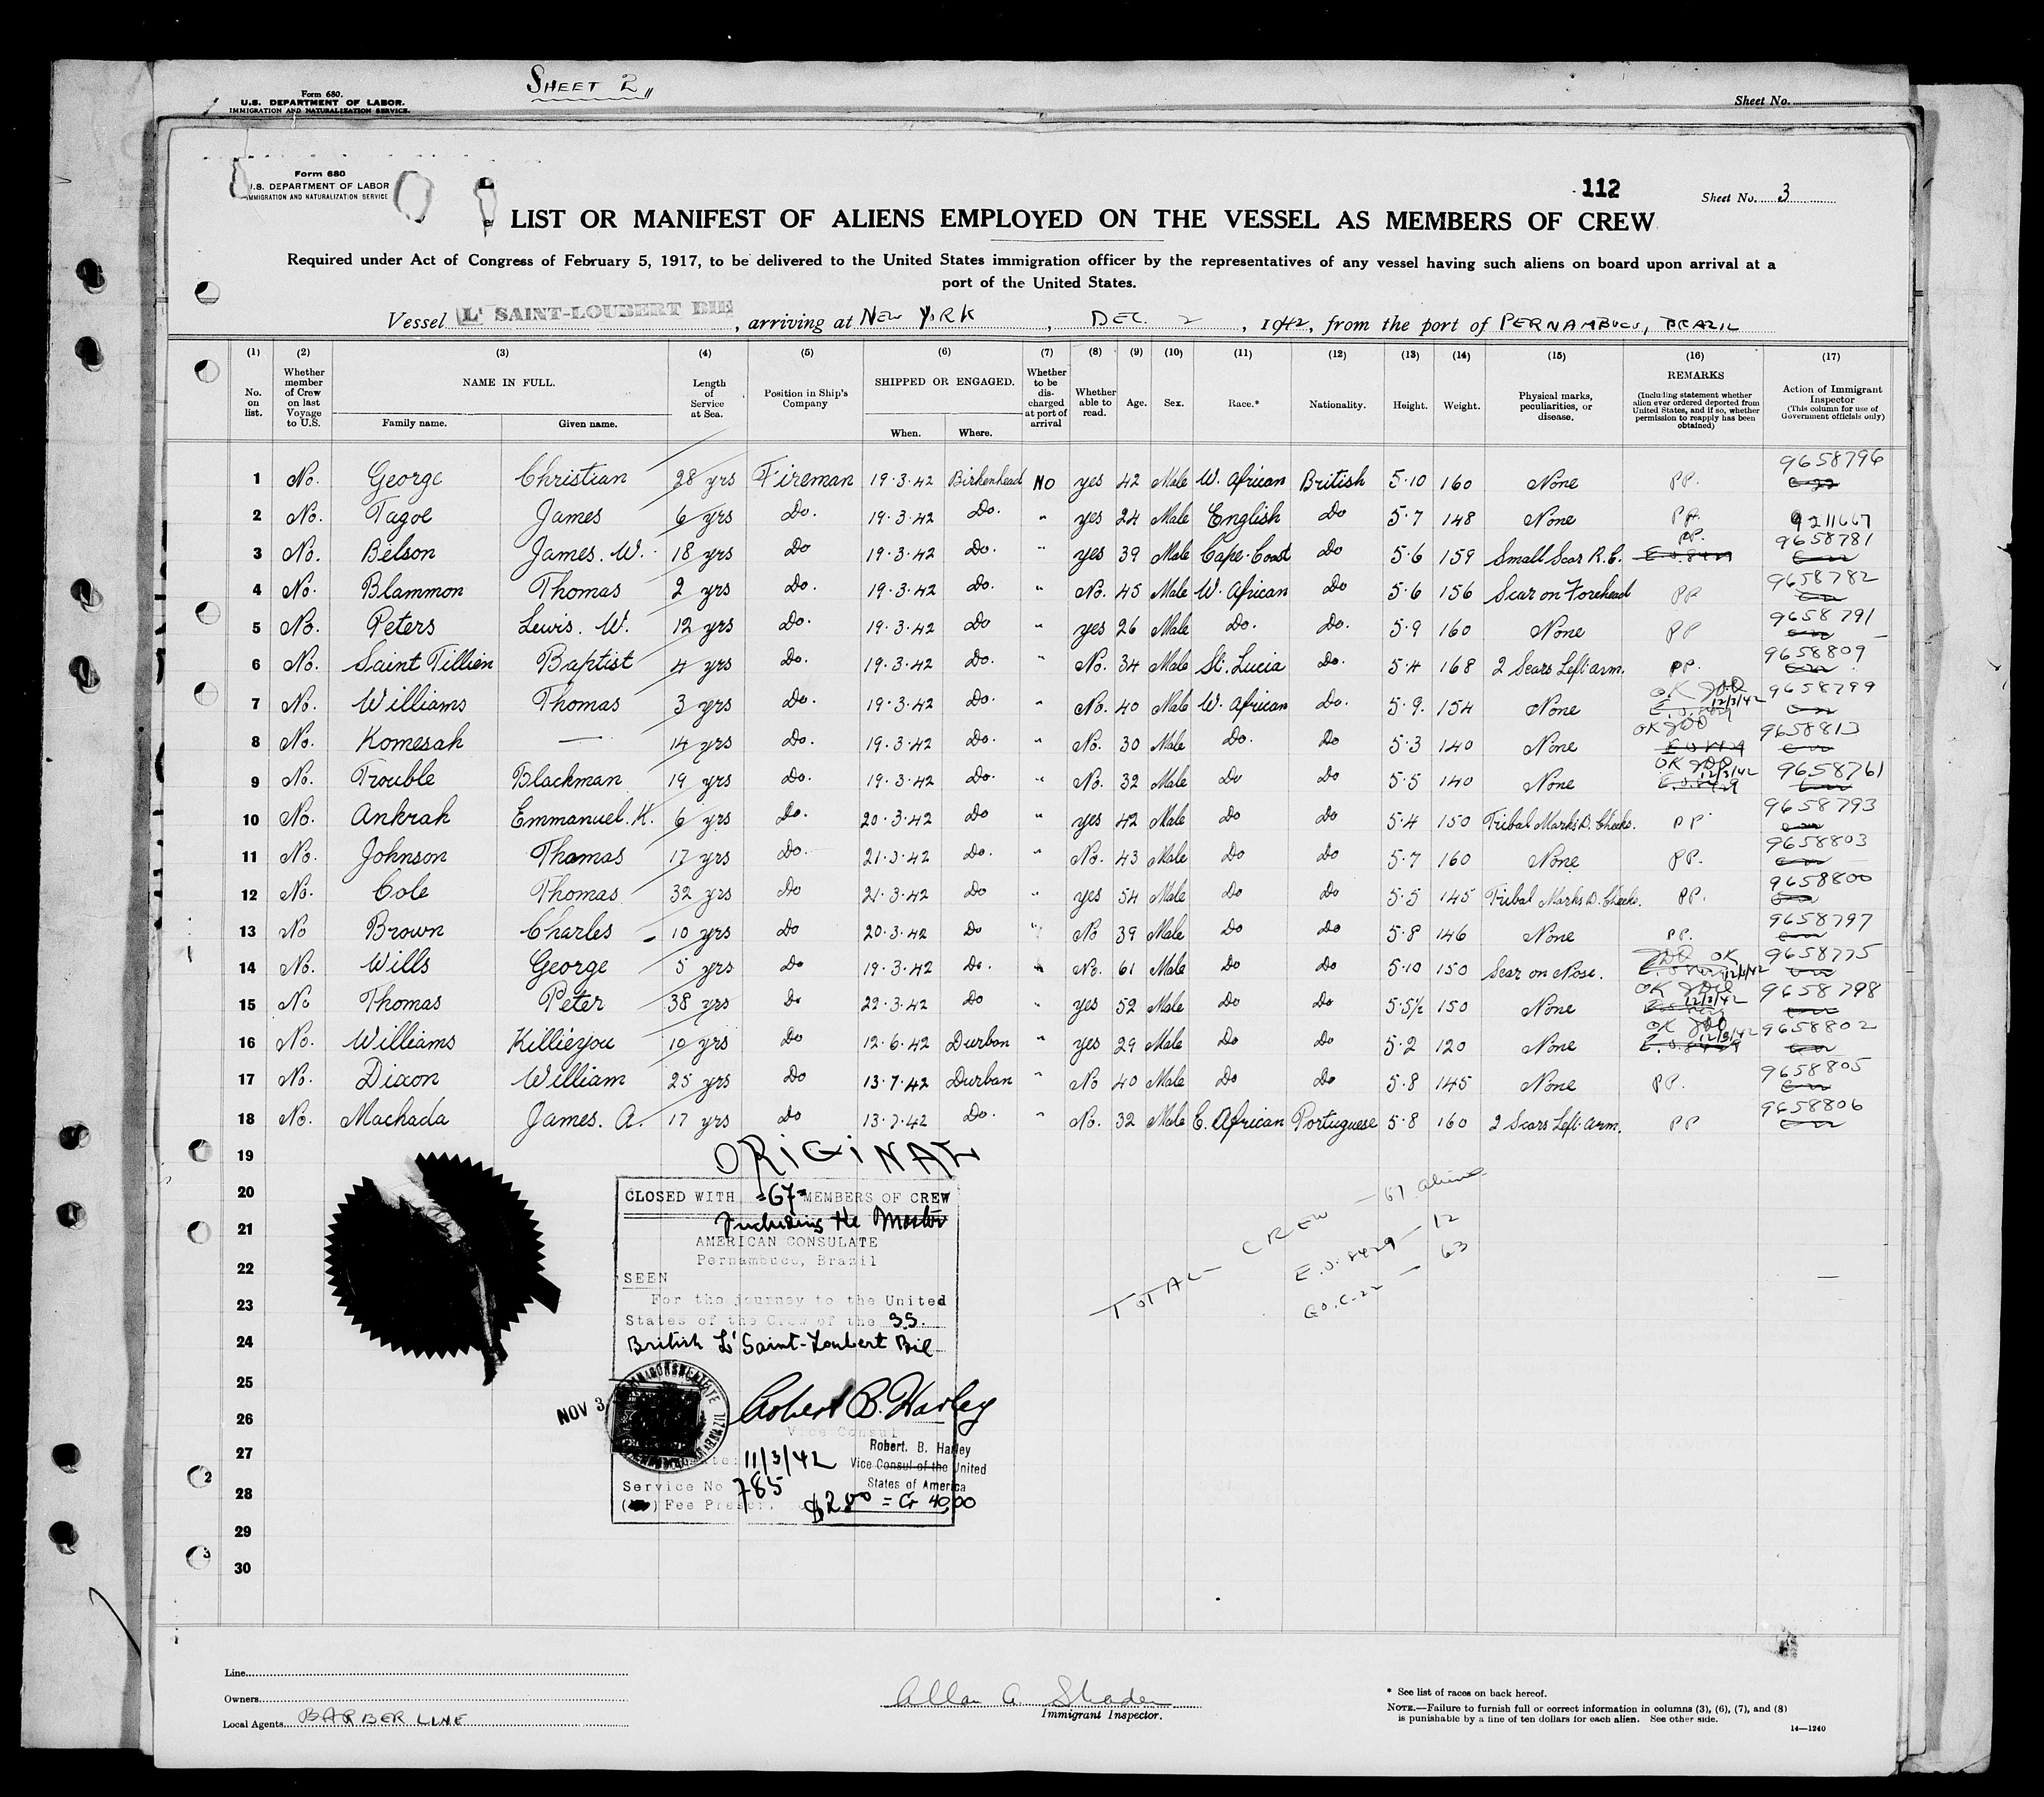 SHEET 2
Form 680.
U.S. DEPARTMENT OF LABOR.
IMMIGRATION AND NATURALIZATION SERVICE.
Sheet No.
Form 680
U.S. DEPARTMENT OF LABOR
IMMIGRATION AND NATURALIZATION SERVICE
112
Sheet No. 3
LIST OR MANIFEST OF ALIENS EMPLOYED ON THE VESSEL AS MEMBERS OF CREW
Required under Act of Congress of February 5, 1917, to be delivered to the United States immigration officer by the representatives of any vessel having such aliens on board upon arrival at a
port of the United States.
Vessel L' SAINT-LOUBERT BIE, arriving at NEW YORK, DEC. 2, 1942, from the port of PERNAMBUCO, BRAZIL
(1) (2) (3) (4) (5) (6) (7) (8) (9) (10) (11) (12) (13) (14) (15) (16) (17)
No. on list. Whether member of Crew on last Voyage to U.S. NAME IN FULL. Family name. Given name. Length of Service at Sea. Position in Ship's Company SHIPPED OR ENGAGED. When. Where. Whether to be discharged at port of arrival Whether able to read. Age. Sex. Race.* Nationality. Height. Weight. Physical marks, peculiarities, or disease. REMARKS (Including statement whether alien ever ordered deported from United States, and if so, whether permission to reapply has been obtained) Action of Immigrant Inspector (This column for use of Government officials only)
1 No. George Christian 28 yrs Fireman 19.3.42 Birkenhead NO yes 42 Male W. African British 5.10 160 None PP. 9658796
2 No. Tagoe James 6 yrs Do. 19.3.42 Do. " yes 24 Male English Do 5.7 148 None PP. 9211667
3 No. Belson James. W. 18 yrs Do 19.3.42 Do. " yes 39 Male Cape. Coast Do 5.6 159 Small Scar R.E. PP. E.O.8429 9658781
4 No. Blammon Thomas 2 yrs Do. 19.3.42 Do. " No. 45 Male W. African Do 5.6 156 Scar on Forehead PP 9658782
5 No. Peters Lewis. W. 12 yrs Do. 19.3.42 Do " yes 26 Male Do. Do. 5.9 160 None PP 9658791
6 No. Saint Tillien Baptist 4 yrs Do. 19.3.42 Do. " No. 34 Male St. Lucia Do. 5.4 168 2 Scars Left arm. PP. 9658809
7 No. Williams Thomas 3 yrs Do. 19.3.42 Do. " No. 40 Male W. African Do. 5.9. 154 None OK 12/3/42 9658799
8 No. Komesah — 14 yrs Do. 19.3.42 Do. " No. 30 Male Do. Do 5.3 140 None OK E.O.8429 9658813
9 No. Trouble Blackman 19 yrs Do. 19.3.42 Do. " No. 32 Male Do Do 5.5 140 None OK 12/3/42 E.O.8429 9658761
10 No. Ankrah Emmanuel. K. 6 yrs Do. 20.3.42 Do " yes 42 Male Do Do 5.4 150 Tribal Marks B. Cheeks. PP 9658793
11 No. Johnson Thomas 17 yrs Do. 21.3.42 Do. " No. 43 Male Do Do 5.7 160 None PP. 9658803
12 No. Cole Thomas 32 yrs Do 21.3.42 Do " yes 54 Male Do Do 5.5 145 Tribal Marks B. Cheeks. PP. 9658800
13 No Brown Charles 10 yrs Do 20.3.42 Do " No 39 Male Do Do 5.8 146 None PP. 9658797
14 No. Wills George 5 yrs Do 19.3.42 Do. " No. 61 Male Do Do 5.10 150 Scar on Nose. OK 9658775
15 No Thomas Peter 38 yrs Do 22.3.42 Do " yes 52 Male Do Do 5.5½ 150 None OK 12/3/42 9658798
16 No. Williams Killieyou 10 yrs Do 12.6.42 Durban " yes 29 Male Do Do 5.2 120 None OK 12/3/42 E.O.8429 9658802
17 No. Dixon William 25 yrs Do 13.7.42 Durban " No 40 Male Do Do 5.8 145 None PP. 9658805
18 No. Machada James. A. 17 yrs Do 13.7.42 Do. " No. 32 Male C. African Portuguese 5.8 160 2 Scars Left arm. PP 9658806
19
20
21
22
23
24
25
26
27
28
29
30
ORIGINAL
CLOSED WITH =67= MEMBERS OF CREW
Including the Master
AMERICAN CONSULATE
Pernambuco, Brazil
SEEN
For the journey to the United
States of the Crew of the SS.
British L' Saint-Loubert Bie
NOV 3
Robert B. Harley
Vice Consul
Robert. B. Harley
Vice Consul of the United
States of America
Date: 11/3/42
Service No 785
Fee Prescr. $2.00 = Cr 40,00
TOTAL CREW — 67 aliens
E.O. 8429 — 12
GO.C-22 — 63
2
3
Line
Owners
Local Agents BARBER LINE
Allan G Shaden
Immigrant Inspector.
* See list of races on back hereof.
NOTE.—Failure to furnish full or correct information in columns (3), (6), (7), and (8)
is punishable by a fine of ten dollars for each alien. See other side.
14—1240